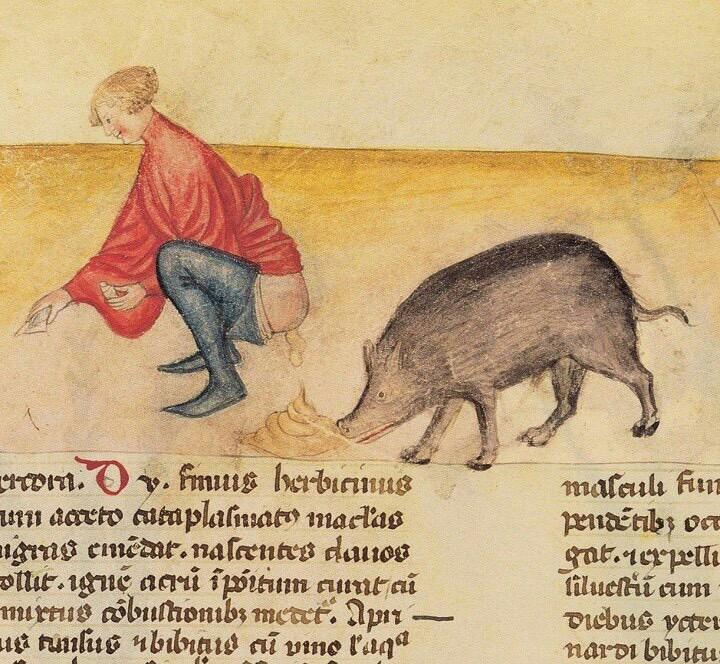 ercora. Dy. fimus herbicinus
um aceto cataplasmatꝯ mac'las
igras emēdat. nascentes clauos
ollit. ignē acrū īpōitum curat cū
mixtus cōbustionibꝫ medet'. Apri
us tunsus ⁊ bibitus cū vino l'aqª
masculi
pendētibꝫ
gat. ⁊ expelli
siluestrū cum
diebus ycter
nardi bibitu